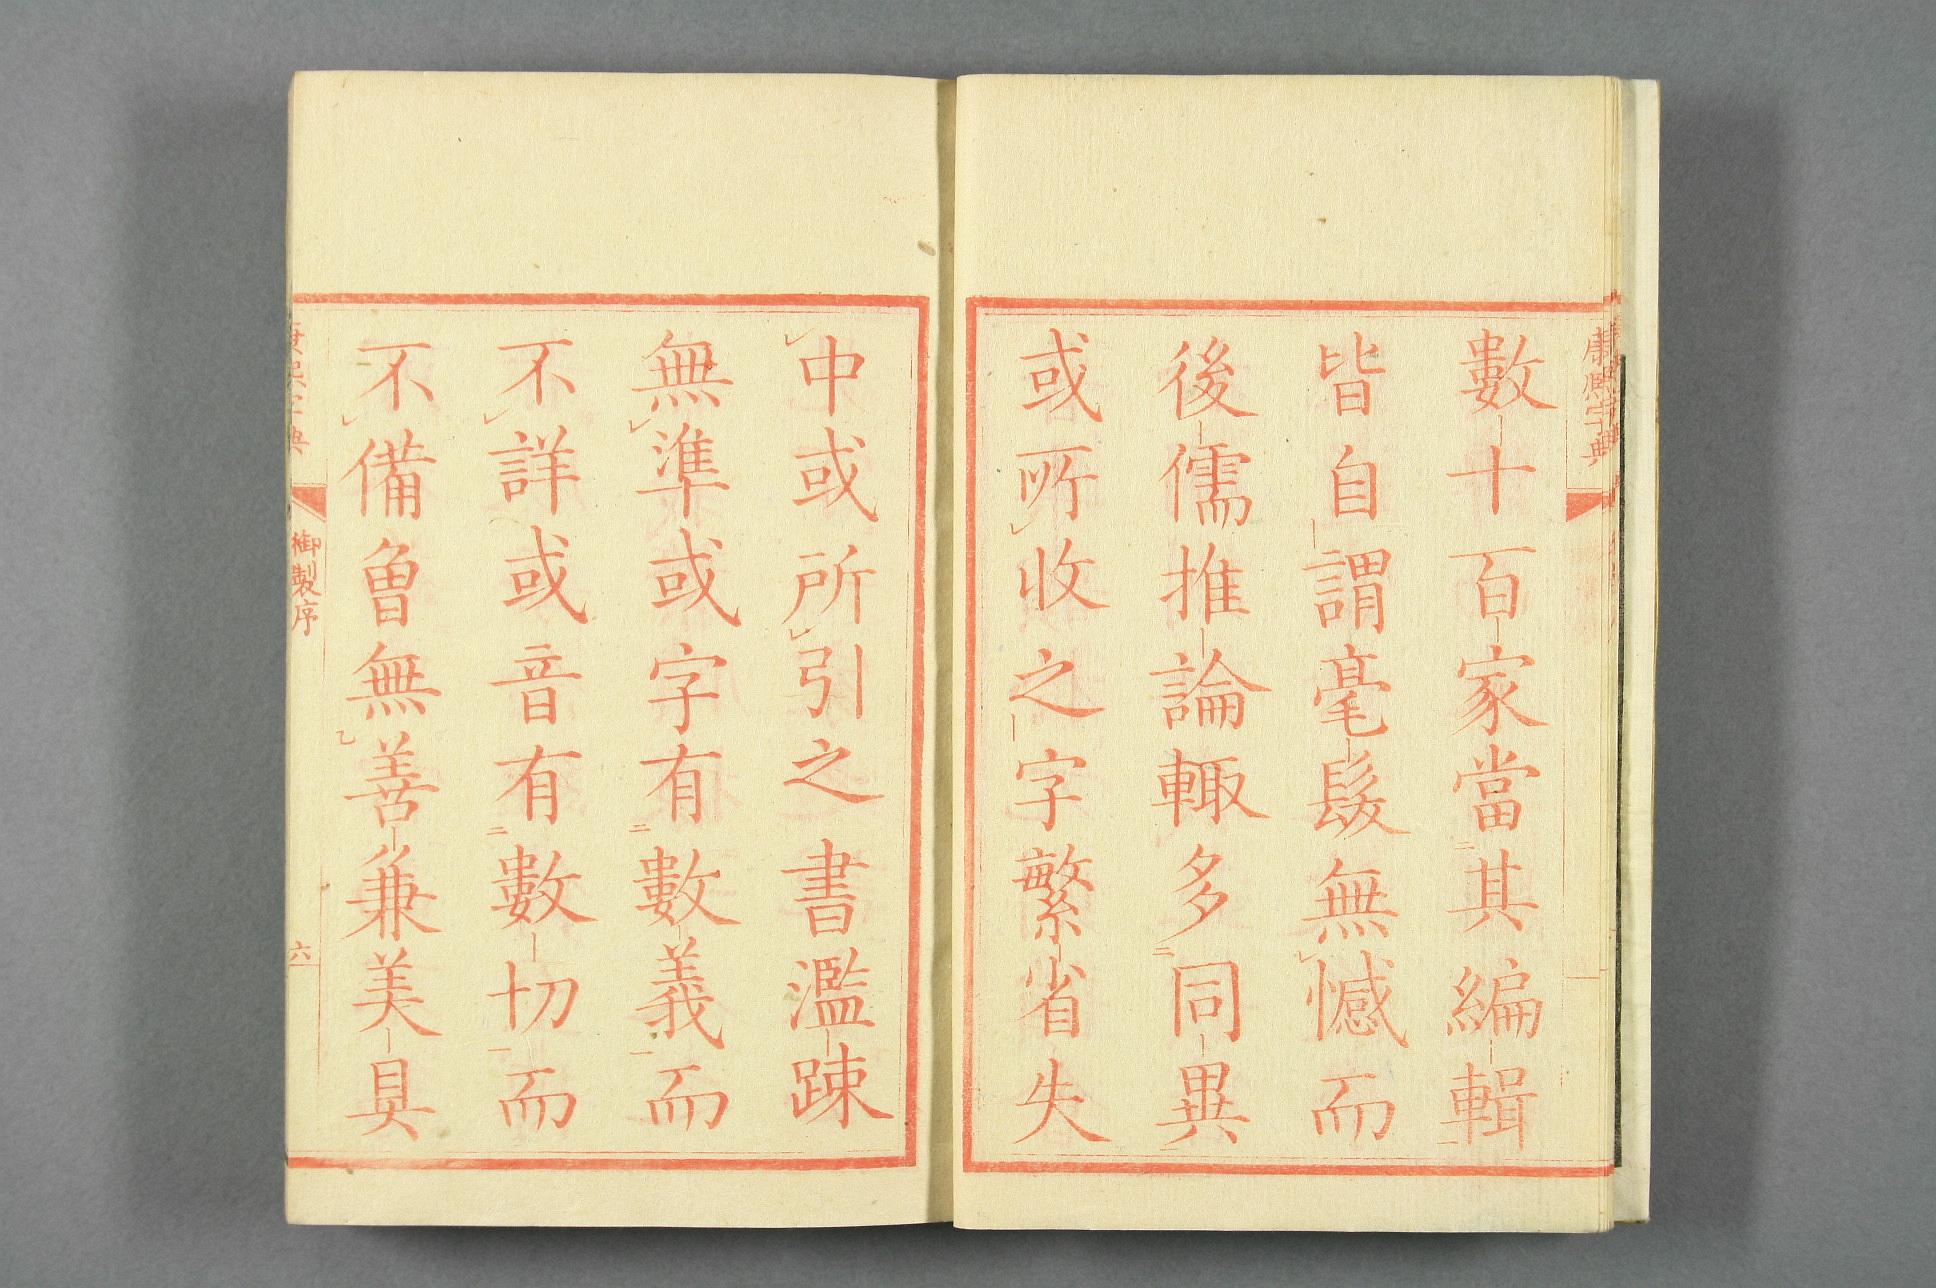 康熙字典
數十百家當其編輯
皆自謂毫髮無憾而
後儒推論輙多同異
或所收之字繁省失
中或所引之書濫疎
無準或字有數義而
不詳或音有數切而
不備曾無善兼美具
康熙字典
御製序
六